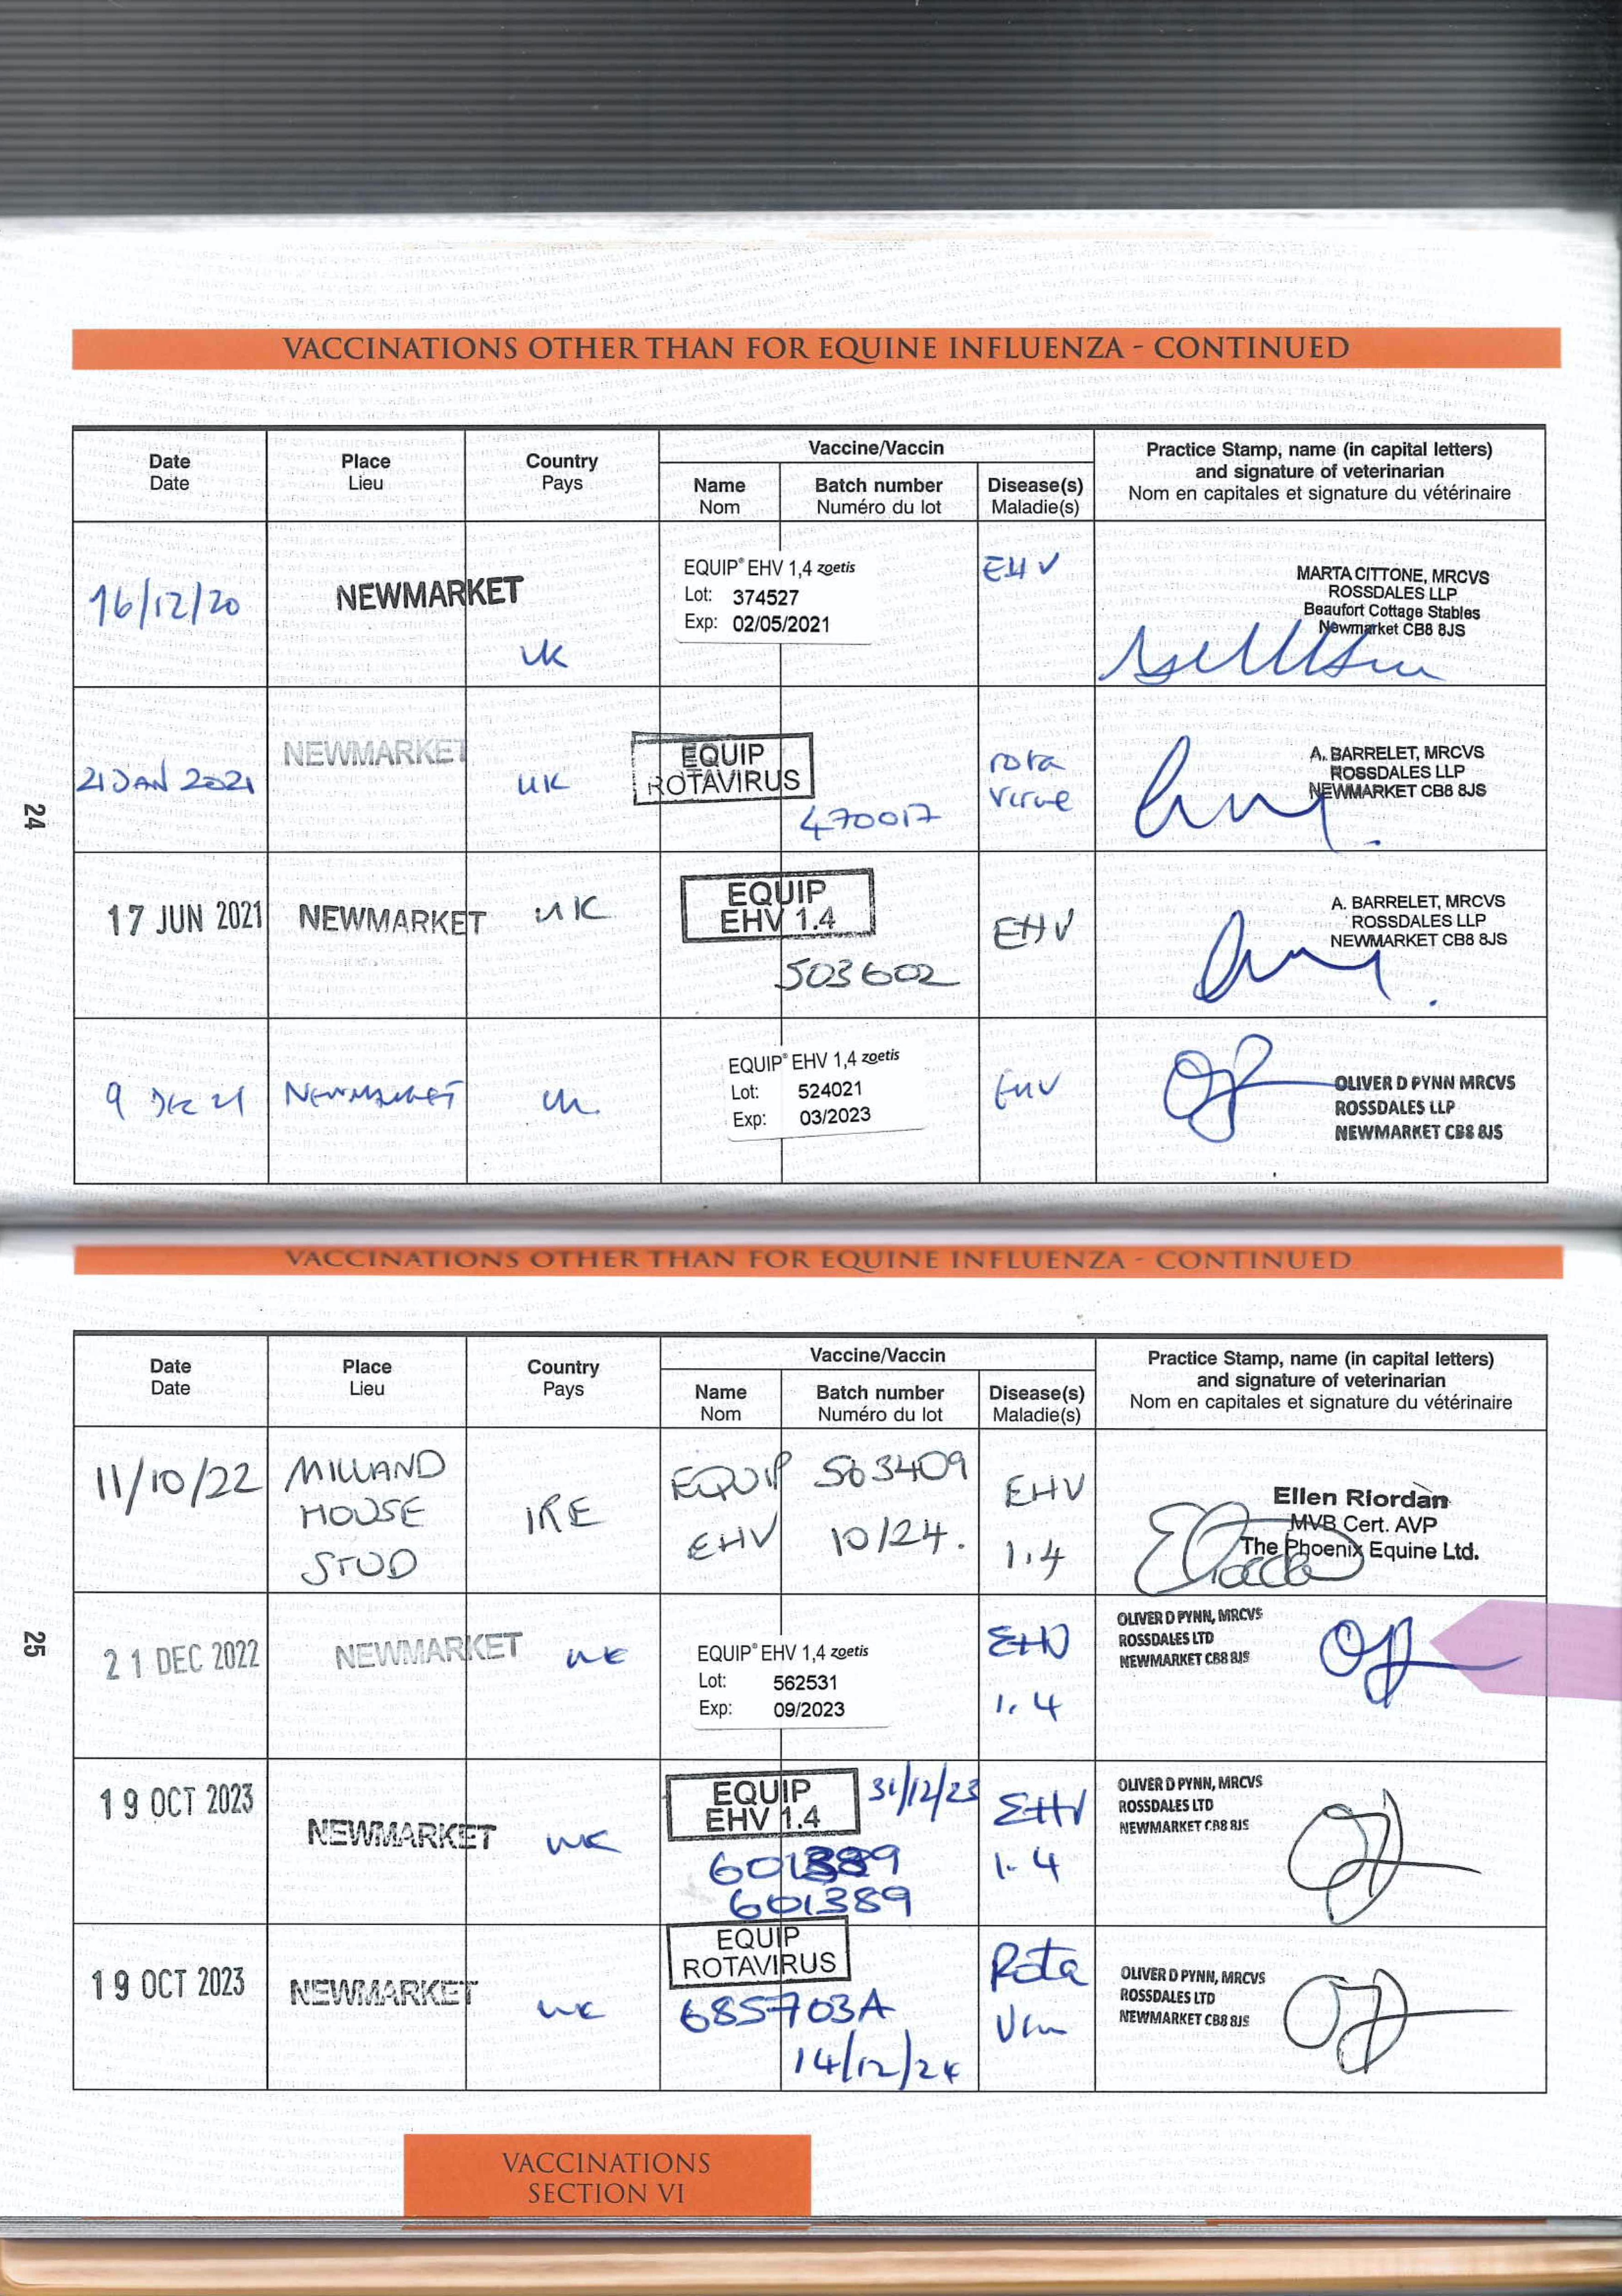 VACCINATIONS OTHER THAN FOR EQUINE INFLUENZA - CONTINUED
Date
Date
Place
Lieu
Country
Pays
Vaccine/Vaccin
Name
Nom
Batch number
Numéro du lot
Disease(s)
Maladie(s)
Practice Stamp, name (in capital letters)
and signature of veterinarian
Nom en capitales et signature du vétérinaire
16/12/20
NEWMARKET
UK
EQUIP® EHV 1,4 zoetis
Lot: 374527
Exp: 02/05/2021
EHV
MARTA CITTONE, MRCVS
ROSSDALES LLP
Beaufort Cottage Stables
Newmarket CB8 8JS
21 JAN 2021
NEWMARKET
UK
EQUIP
ROTAVIRUS
470017
rota
A. BARRELET, MRCVS
ROSSDALES LLP
NEWMARKET CB8 8JS
24
17 JUN 2021
NEWMARKET
UK
EQUIP
EHV 1.4
503602
EHV
A. BARRELET, MRCVS
ROSSDALES LLP
NEWMARKET CB8 8JS
9 DEC 21
NEWMARKET
EQUIP® EHV 1,4 zoetis
Lot: 524021
Exp: 03/2023
EHV
OLIVER D PYNN MRCVS
ROSSDALES LLP
NEWMARKET CB8 8JS
VACCINATIONS OTHER THAN FOR EQUINE INFLUENZA - CONTINUED
Date
Date
Place
Lieu
Country
Pays
Vaccine/Vaccin
Name
Nom
Batch number
Numéro du lot
Disease(s)
Maladie(s)
Practice Stamp, name (in capital letters)
and signature of veterinarian
Nom en capitales et signature du vétérinaire
11/10/22
HOUSE
STUD
IRE
EQUIP
EHV
563409
10/24.
EHV
1.4
Ellen Riordan
MVB Cert. AVP
The Phoenix Equine Ltd.
25
21 DEC 2022
NEWMARKET
UK
EQUIP® EHV 1,4 zoetis
Lot: 562531
Exp: 09/2023
EHV
1.4
OLIVER D PYNN, MRCVS
ROSSDALES LTD
NEWMARKET CB8 8JS
19 OCT 2023
NEWMARKET
UK
EQUIP
EHV 1.4
31/12/23
601389
601389
EHV
1.4
OLIVER D PYNN, MRCVS
ROSSDALES LTD
NEWMARKET CB8 8JS
19 OCT 2023
NEWMARKET
UK
EQUIP
ROTAVIRUS
685703A
14/12/24
Rota
OLIVER D PYNN, MRCVS
ROSSDALES LTD
NEWMARKET CB8 8JS
VACCINATIONS
SECTION VI